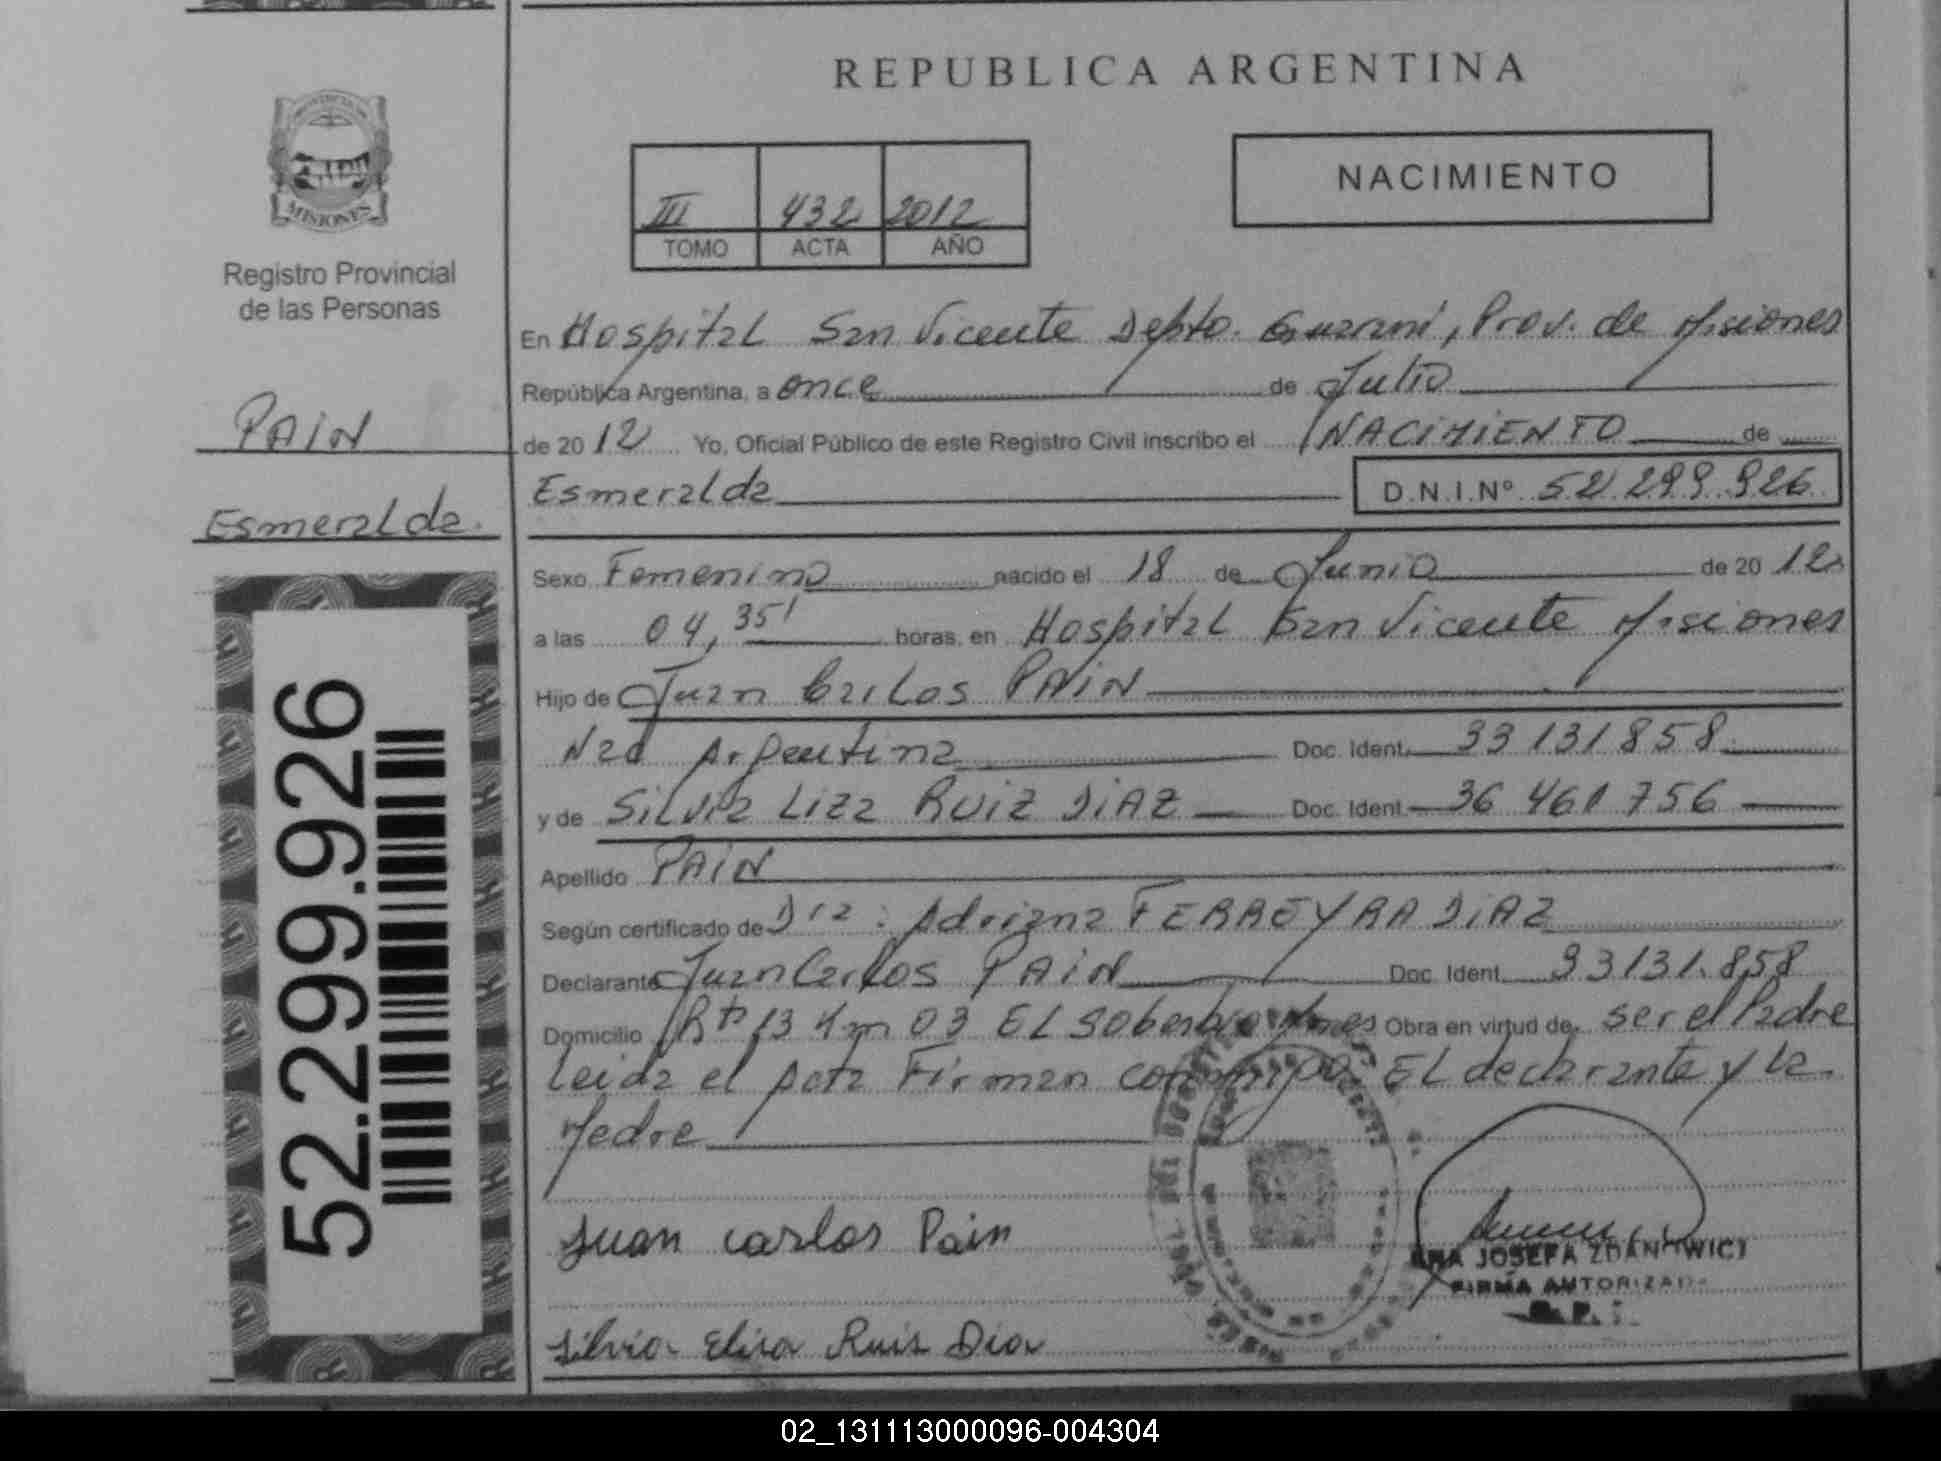 REPUBLICA ARGENTINA
PROVINCIA DE
MISIONES
Registro Provincial
de las Personas
PAIN
Esmeralda.
52.299.926
III 432 2012
TOMO ACTA AÑO
NACIMIENTO
En Hospital San Vicente Depto. Guarani, Prov. de Misiones
República Argentina, a once de Julio
de 2012 Yo, Oficial Público de este Registro Civil inscribo el NACIMIENTO de
Esmeralda D.N.I.Nº 52 299.926
Sexo Femenino nacido el 18 de Junio de 2012
a las 04,35' horas, en Hospital San Vicente Misiones
Hijo de Juan Carlos PAIN
Nad Argentina Doc. Ident. 33 131 858
y de Silvia Liza RUIZ DIAZ Doc. Ident. 36 461 756
Apellido PAIN
Según certificado de Dra: Adriana FERREYRA DIAZ
Declarante Juan Carlos PAIN Doc. Ident. 33131.858
Domicilio Rta 13 Km 03 EL Soberbio Mnes Obra en virtud de ser el Padre
Leida el Acta Firman conmigo EL declarante y la
Madre
Juan Carlos Pain
JOSEFA ZDANOWICZ
FIRMA AUTORIZADA
Silvia Elisa Ruis Dia
02_131113000096-004304